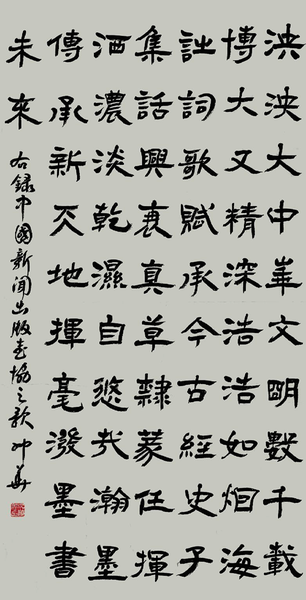 泱泱大中華文明數千載
博大又精深浩浩如烟海
詩詞歌賦承今古經史子
集話興衰真草隸篆任揮
洒濃淡乾濕自悠哉瀚墨
傳承新天地揮毫潑墨書
未來
右錄中國新聞出版書協之歌冲華